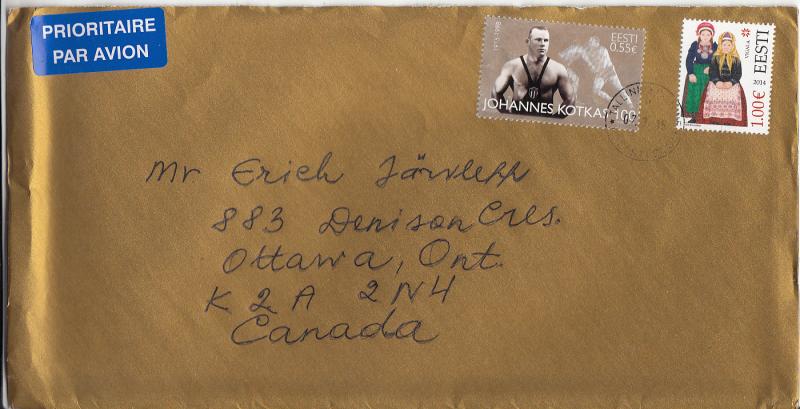 PRIORITAIRE
PAR AVION
1915-1998
EESTI
0.55€
JOHANNES KOTKAS 100
VIGALA
EESTI
2014
1.00€
TALLINN
Mr Erich Järvlepp
883 Denison Cres.
Ottawa, Ont.
K2A 2N4
Canada